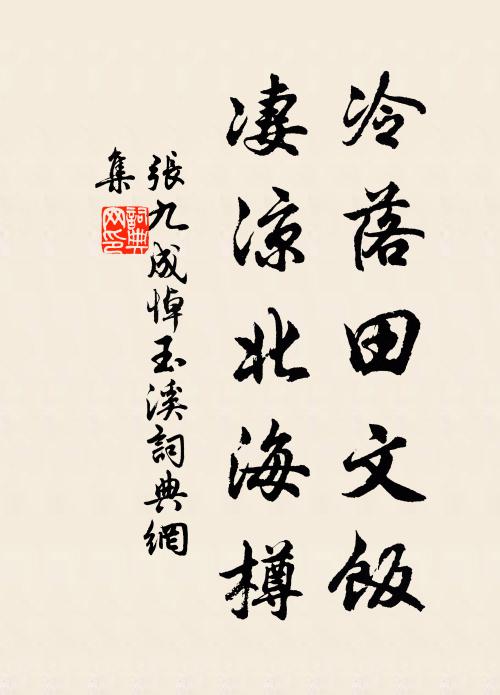 冷落田文飯
凄涼北海樽
張九成悼玉溪詞典網
集
詞典網印